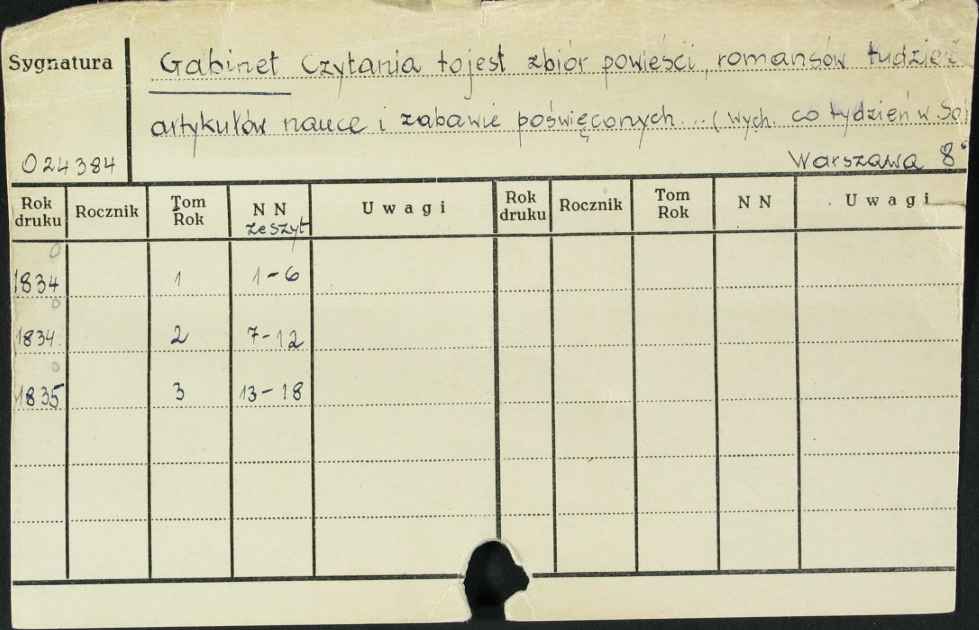 Sygnatura
Gabinet Czytania tojest zbiór powieści, romansów tudzież
artykułów nauce i zabawie poświęconych... (Wych. co tydzień w So
024384
Warszawa 8°
Rok druku Rocznik Tom Rok NN zeszyt Uwagi Rok druku Rocznik Tom Rok NN Uwagi
1834 1 1-6
1834 2 7-12
1835 3 13-18